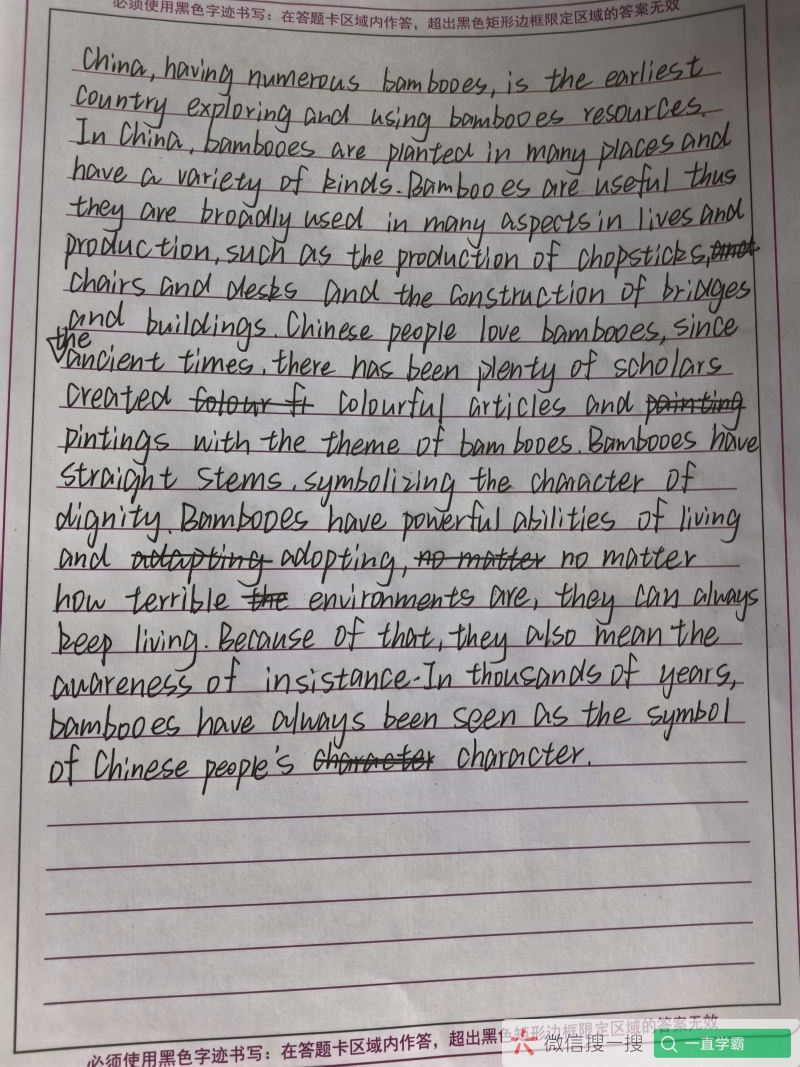 必须使用黑色字迹书写：在答题卡区域内作答，超出黑色矩形边框限定区域的答案无效
China, having numerous bambooes, is the earliest
country exploring and using bambooes resources.
In China, bambooes are planted in many places and
have a variety of kinds. Bambooes are useful thus
they are broadly used in many aspects in lives and
production, such as the production of chopsticks, and
chairs and desks and the construction of bridges
and buildings. Chinese people love bambooes, since
the
ancient times, there has been plenty of scholars
created colour fi colourful articles and painting
pintings with the theme of bambooes. Bambooes have
straight stems, symbolizing the character of
dignity. Bambooes have powerful abilities of living
and adapting adopting, no matter no matter
how terrible the environments are, they can always
keep living. Because of that, they also mean the
awareness of insistance. In thousands of years,
bambooes have always been seen as the symbol
of Chinese people's character character.
必须使用黑色字迹书写：在答题卡区域内作答，超出黑色矩形边框限定区域的答案无效
微信搜一搜 一直学霸